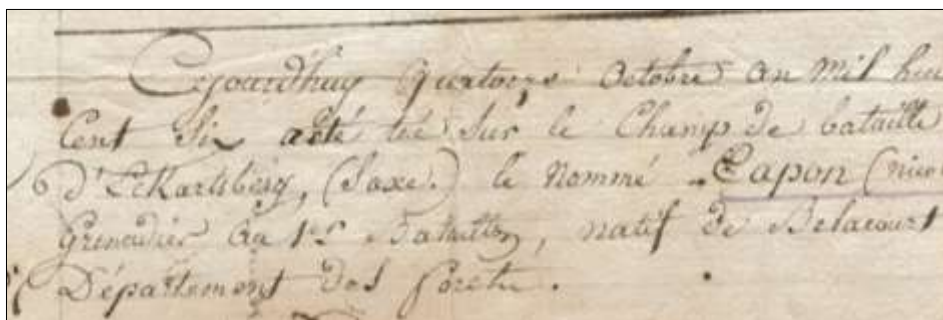 Cejourdhuy quatorze Octobre an mil hui
Cent Six a été tué Sur le Champ de bataille
D'Eckartsberg, (Saxe.) le Nommé Capon (nico
Grenadier au 1er Bataillon, natif de Belacourt
Département des forêts.